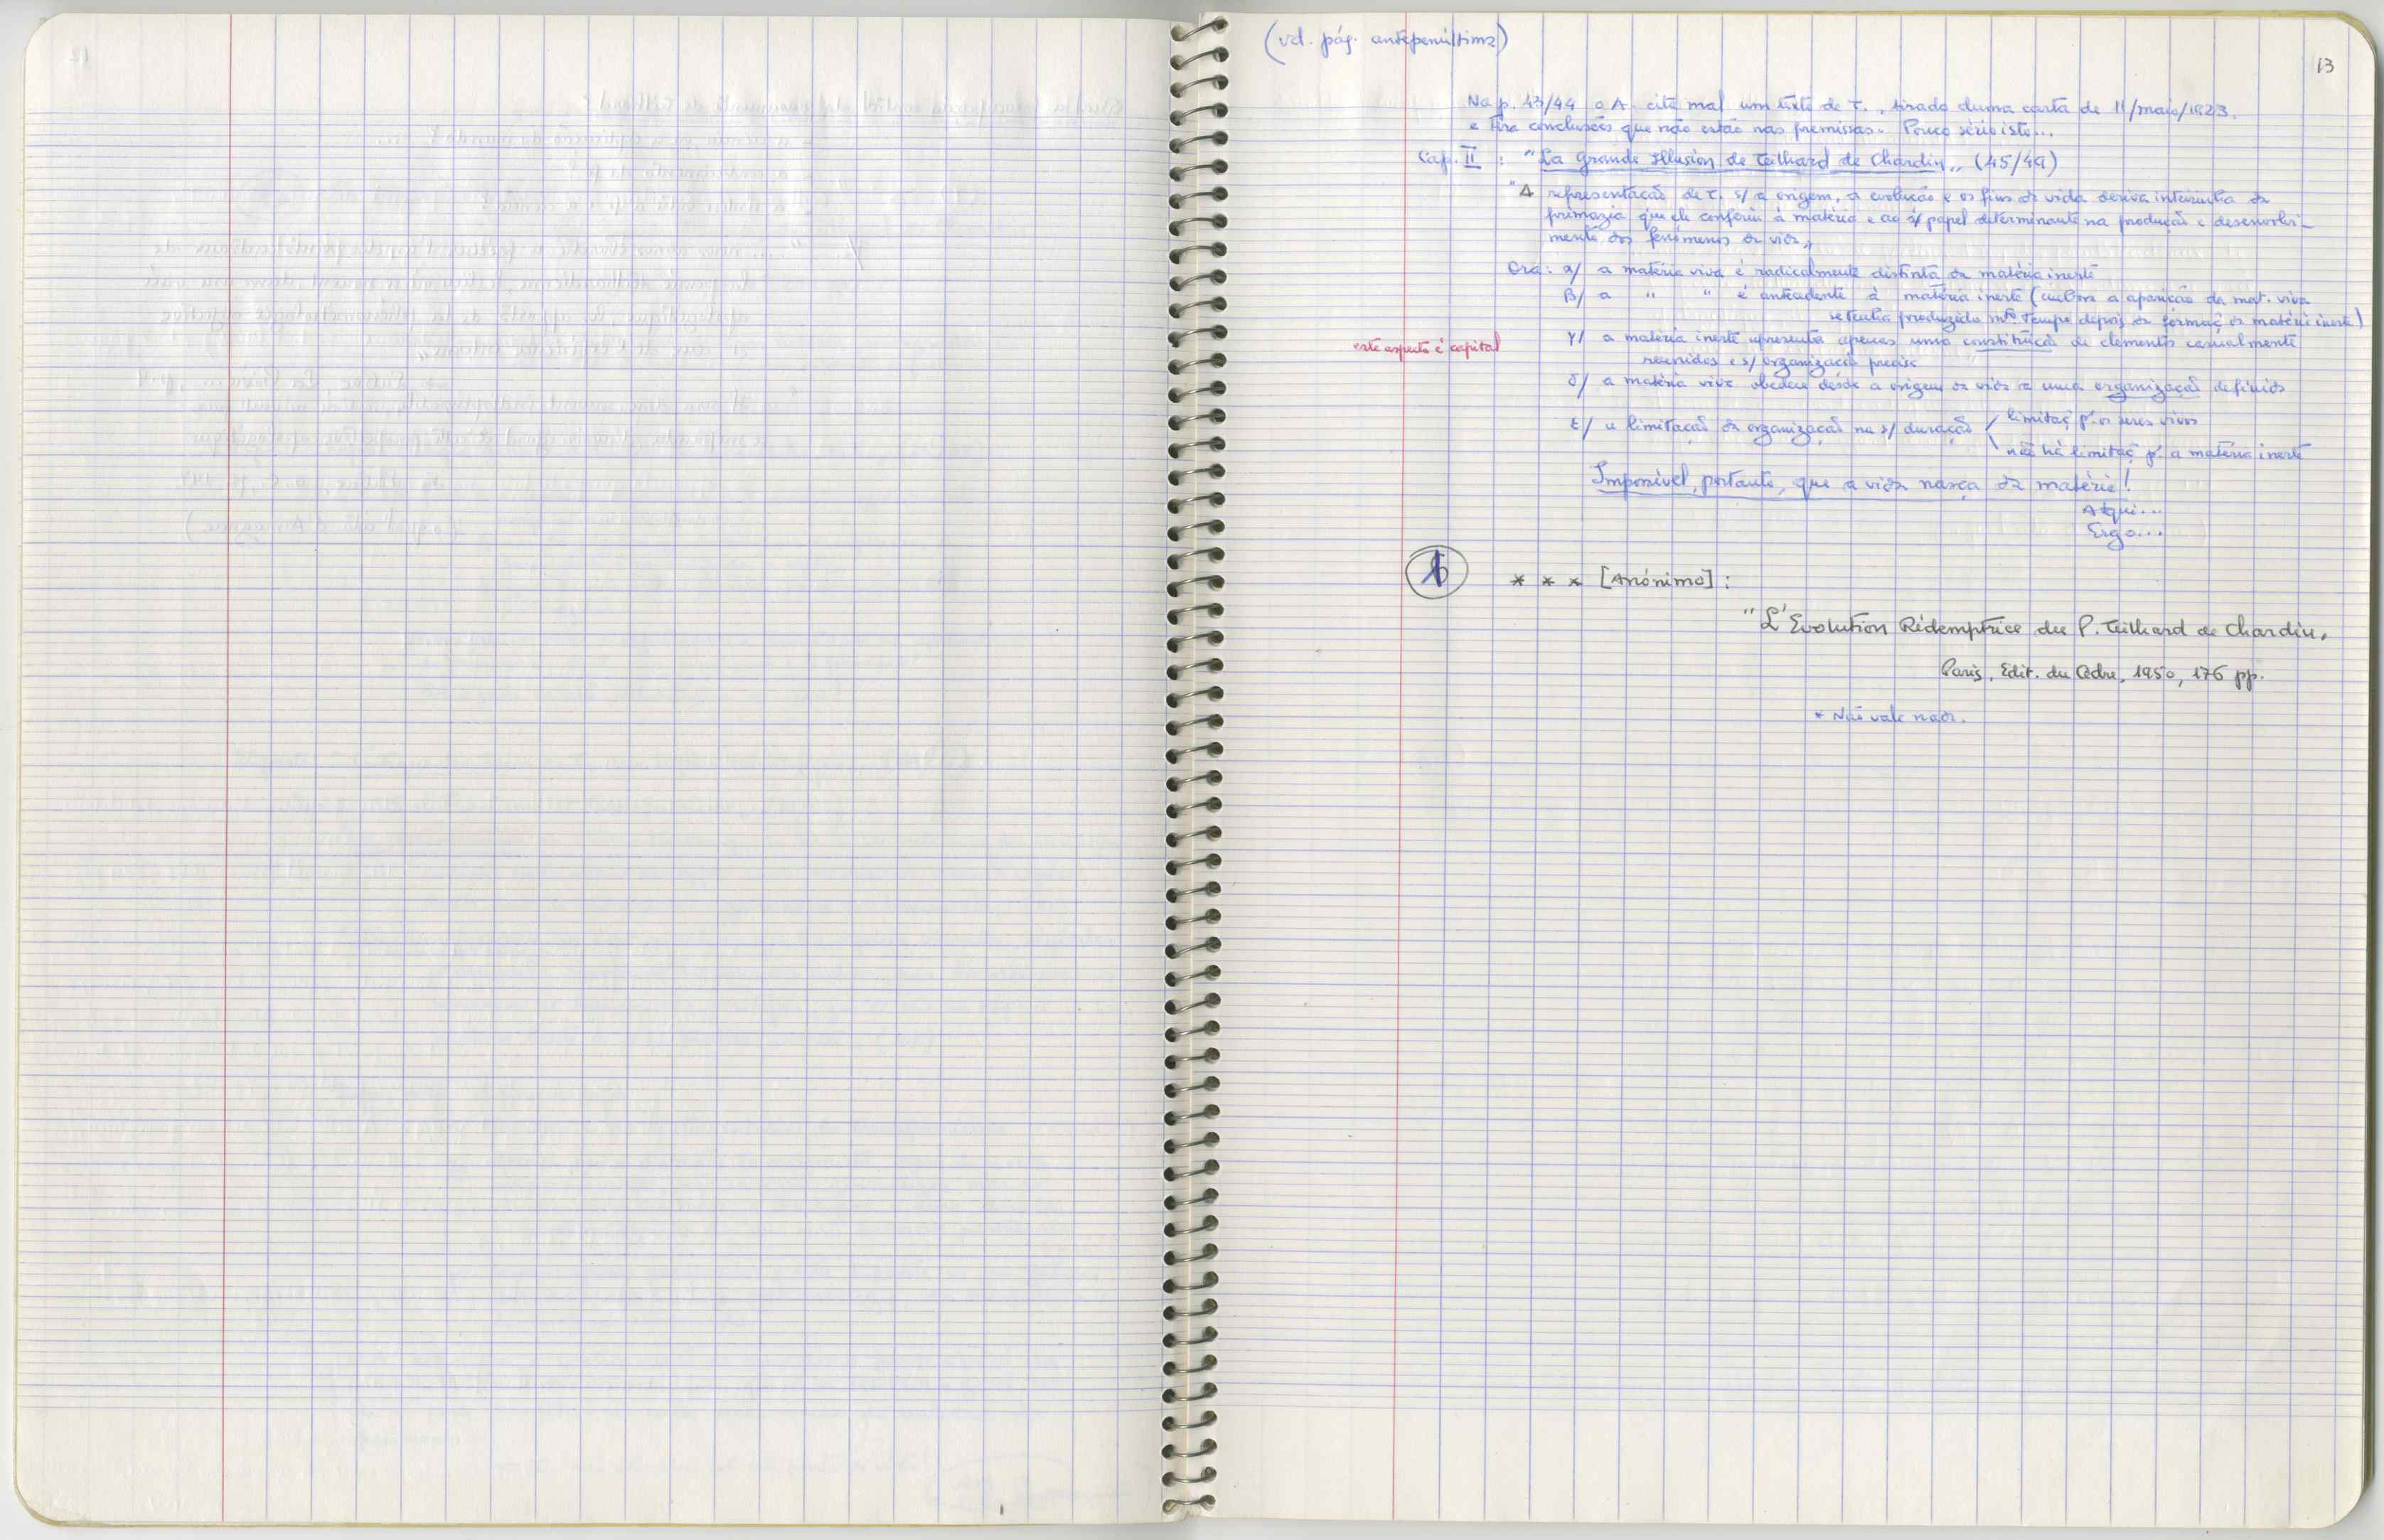 (vd. pág. antepenúltima)
13
Na p. 43/44 o A. cita mal um texto de T., tirado duma carta de 11/maio/1923,
e tira conclusões que não estão nas premissas. Pouco sério isto...
Cap. II : "La Grande Illusion de Teilhard de Chardin„ (45/49)
"A representação de T. s/ a origem, a evolução e os fins da vida deriva inteirinha da
primazia que ele conferiu à matéria e ao s/ papel determinante na produção e desenvolvi-
mento dos fenómenos da vida„
Ora: α/ a matéria viva é radicalmente distinta da matéria inerte
β/ a " " é antecedente à matéria inerte (embora a aparição da mat. viva
se tenha produzido mto tempo depois da formaç. da matéria inerte)
este aspecto é capital
γ/ a matéria inerte apresenta apenas uma constituição de elementos casualmente
reunidos e s/ organização precisa
δ/ a matéria viva obedece desde a origem da vida a uma organização definida
ε/ a limitação da organização na s/ duração / limitaç. p.ª os seres vivos
\ não há limitaç. p.ª a matéria inerte
Impossível, portanto, que a vida nasça da matéria!
Atqui...
Ergo...
* * * [Anónimo] :
"L'Evolution Rédemptrice du P. Teilhard de Chardin,
Paris, Edit. du Cèdre, 1950, 176 pp.
* Não vale nada.